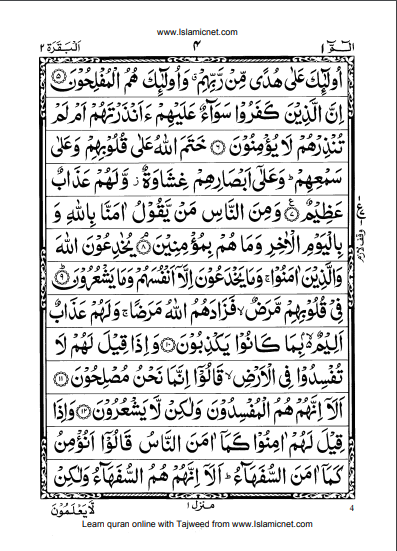 www.Islamicnet.com
الٓمّٓ ١ ۴ اَلْبَقَرَة ٢
اُولٰٓئِكَ عَلٰى هُدًى مِّنْ رَّبِّهِمْ ۙ وَاُولٰٓئِكَ هُمُ الْمُفْلِحُوْنَ ۝۵
اِنَّ الَّذِيْنَ كَفَرُوْا سَوَآءٌ عَلَيْهِمْ ءَاَنْذَرْتَهُمْ اَمْ لَمْ
تُنْذِرْهُمْ لَا يُؤْمِنُوْنَ ۝۶ خَتَمَ اللّٰهُ عَلٰى قُلُوْبِهِمْ وَعَلٰى
سَمْعِهِمْ ؕ وَعَلٰٓى اَبْصَارِهِمْ غِشَاوَةٌ ؗ وَّلَهُمْ عَذَابٌ
عَظِيْمٌ ۝۷ وَمِنَ النَّاسِ مَنْ يَّقُوْلُ اٰمَنَّا بِاللّٰهِ وَ
بِالْيَوْمِ الْاٰخِرِ وَمَا هُمْ بِمُؤْمِنِيْنَ ۝۸ يُخٰدِعُوْنَ اللّٰهَ
وَالَّذِيْنَ اٰمَنُوْا ۚ وَمَا يَخْدَعُوْنَ اِلَّاۤ اَنْفُسَهُمْ وَمَا يَشْعُرُوْنَ ۝۹
فِىْ قُلُوْبِهِمْ مَّرَضٌ ۙ فَزَادَهُمُ اللّٰهُ مَرَضًا ۚ وَلَهُمْ عَذَابٌ
اَلِيْمٌۢ ۙ بِمَا كَانُوْا يَكْذِبُوْنَ ۝۱۰ وَاِذَا قِيْلَ لَهُمْ لَا
تُفْسِدُوْا فِى الْاَرْضِ ۙ قَالُوْٓا اِنَّمَا نَحْنُ مُصْلِحُوْنَ ۝۱۱
اَلَاۤ اِنَّهُمْ هُمُ الْمُفْسِدُوْنَ وَلٰكِنْ لَّا يَشْعُرُوْنَ ۝۱۲ وَاِذَا
قِيْلَ لَهُمْ اٰمِنُوْا كَمَاۤ اٰمَنَ النَّاسُ قَالُوْٓا اَنُؤْمِنُ
كَمَاۤ اٰمَنَ السُّفَهَآءُ ؕ اَلَاۤ اِنَّهُمْ هُمُ السُّفَهَآءُ وَلٰكِنْ
وقف لازم
منزل ١
لَّا يَعْلَمُوْنَ
4
Learn quran online with Tajweed from www.Islamicnet.com